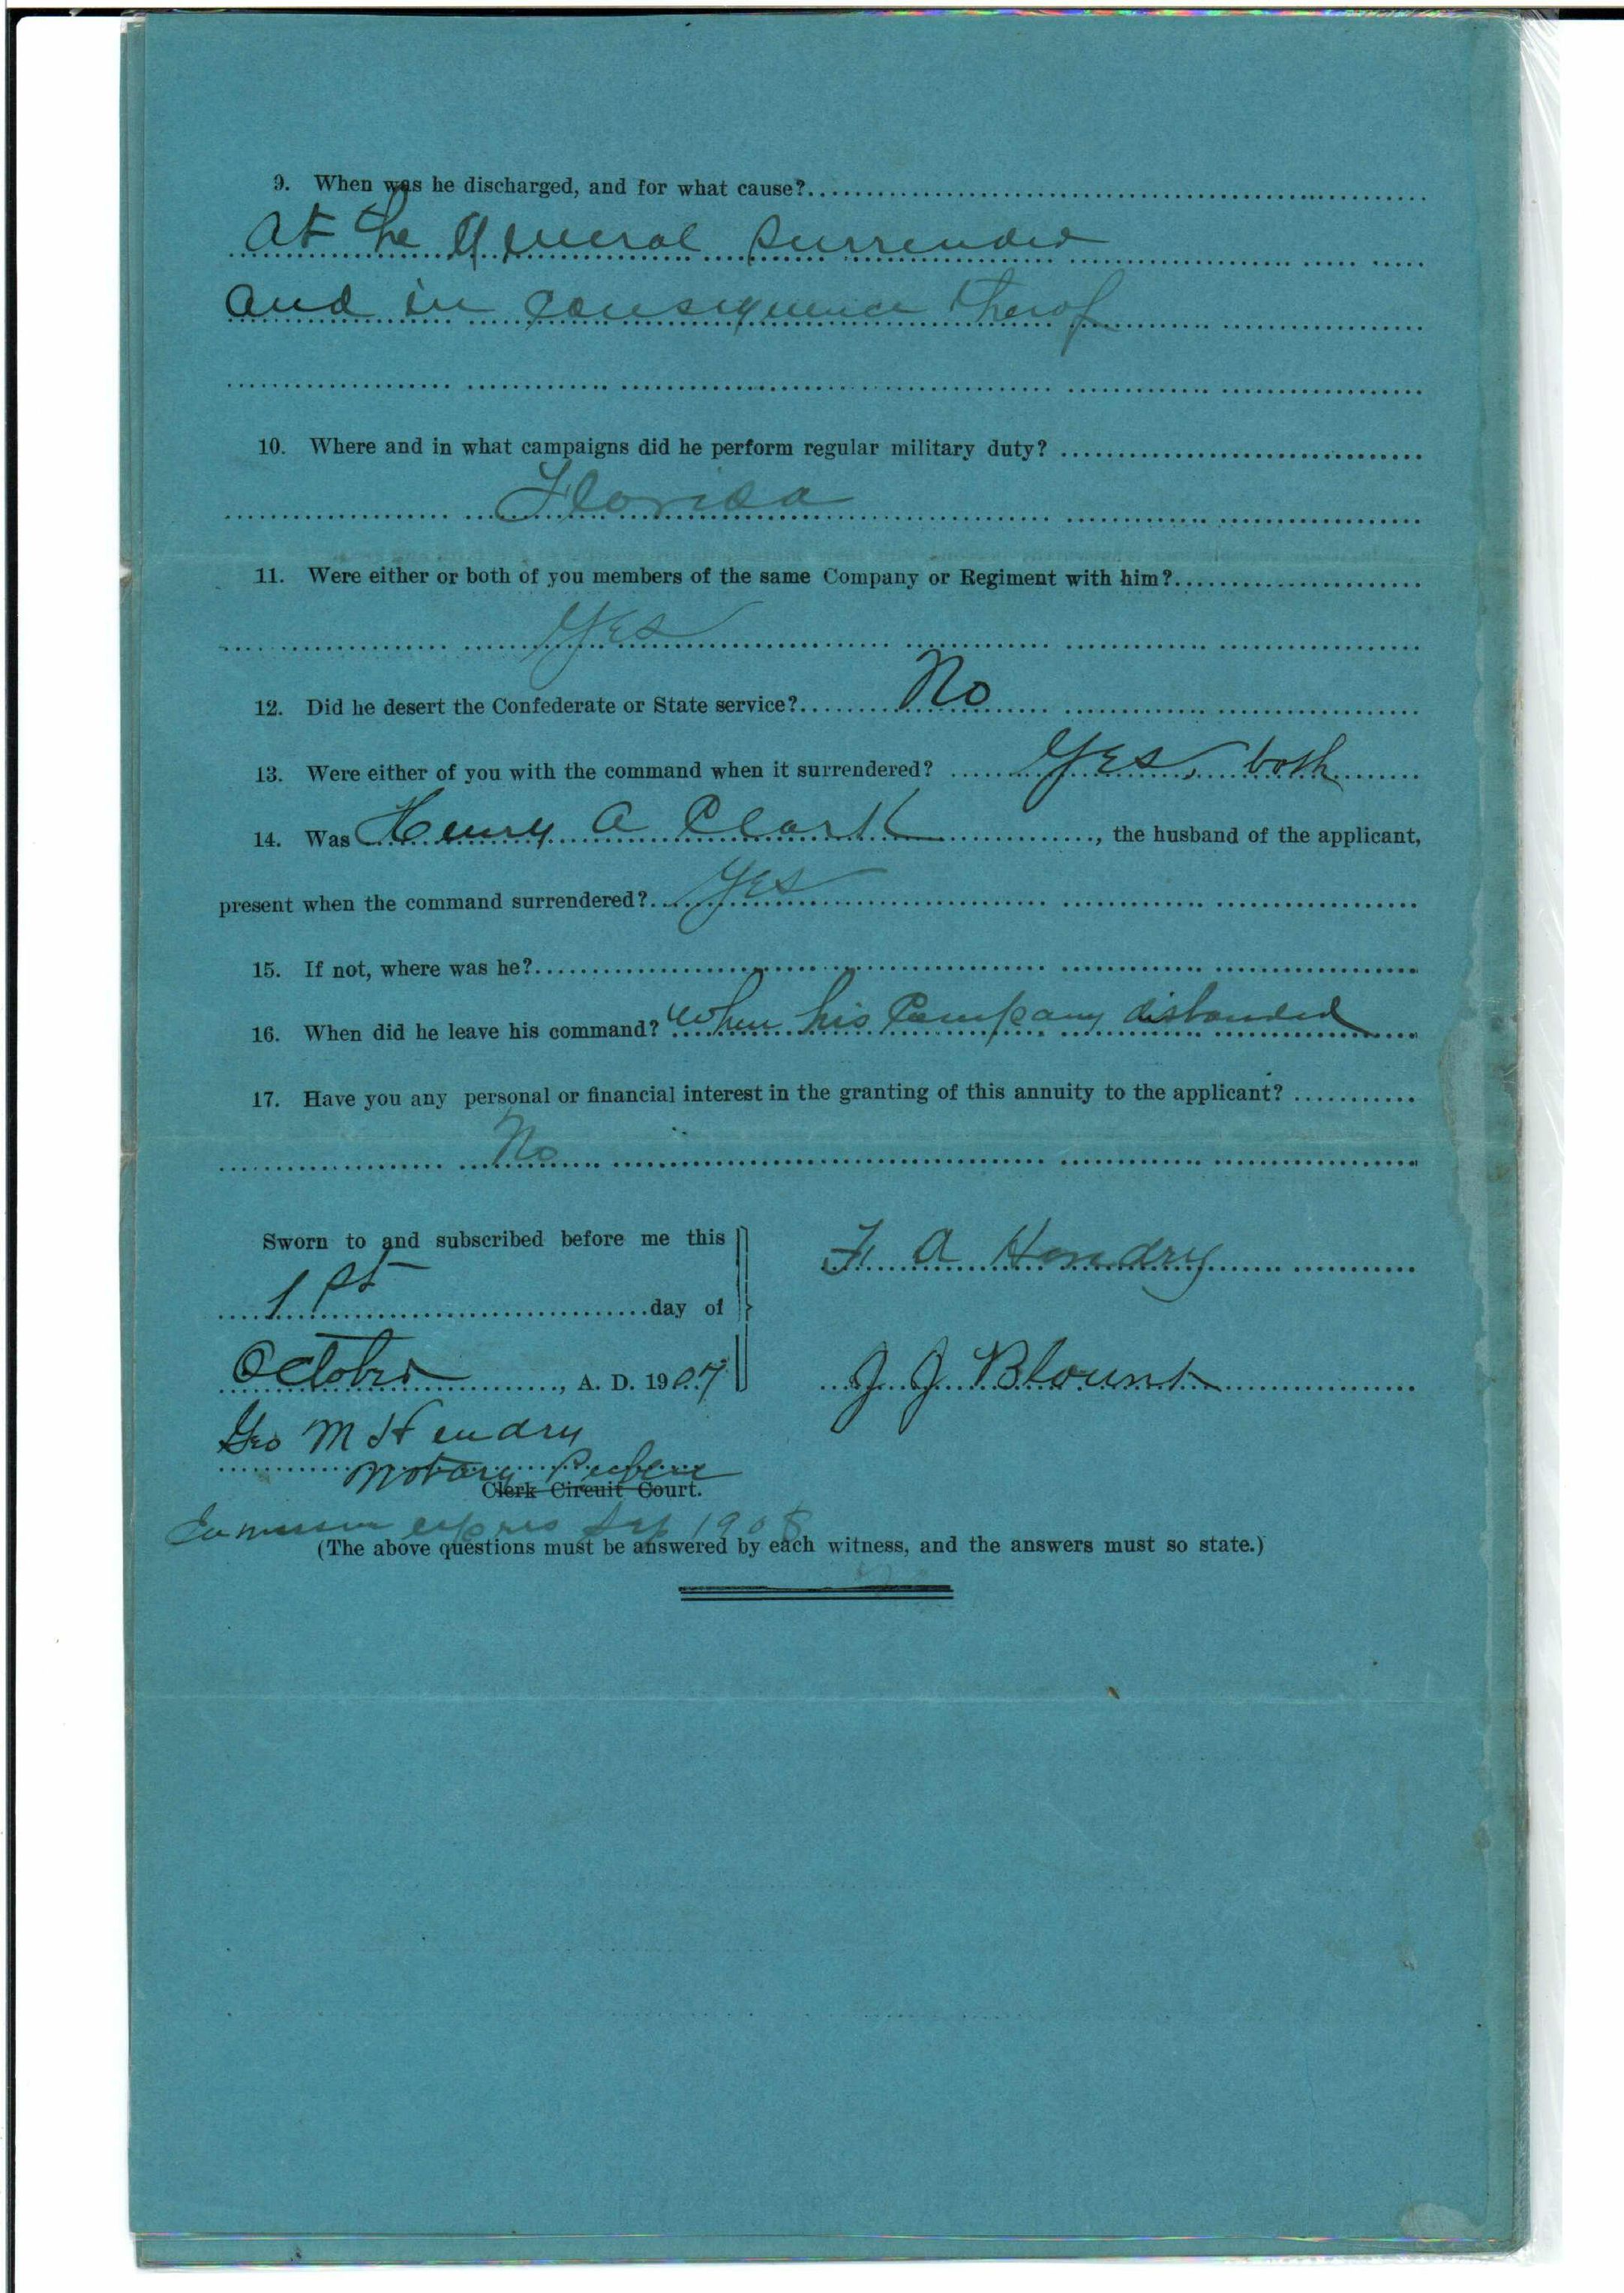 9. When was he discharged, and for what cause?
At the General Surrender
and in consequence therof
10. Where and in what campaigns did he perform regular military duty?
Florida
11. Were either or both of you members of the same Company or Regiment with him?
Yes
12. Did he desert the Confederate or State service? No
13. Were either of you with the command when it surrendered? Yes, both
14. Was Henry A Clark, the husband of the applicant,
present when the command surrendered? Yes
15. If not, where was he?
16. When did he leave his command? When his Company disbanded
17. Have you any personal or financial interest in the granting of this annuity to the applicant?
No
Sworn to and subscribed before me this
1st day of
October, A. D. 1907
F. A Hendry
J J Blount
Geo M Hendry
Notary Public
Clerk Circuit Court.
Commission expires Sep 1908
(The above questions must be answered by each witness, and the answers must so state.)